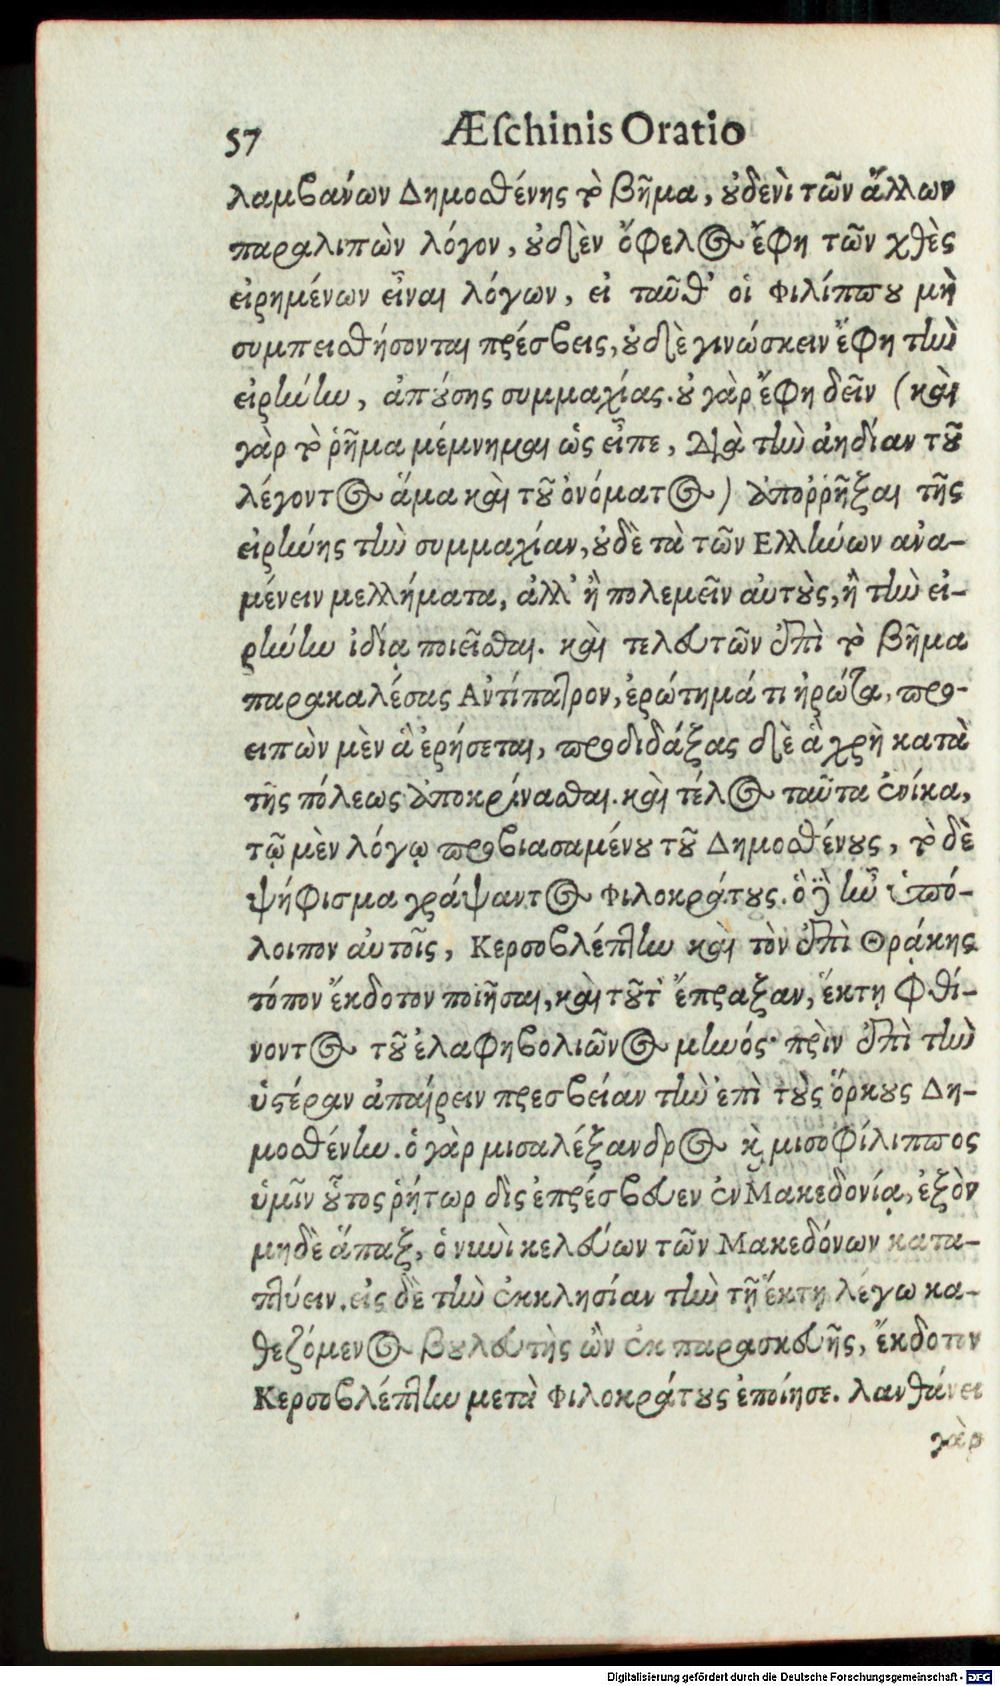 57 Æſchinis Oratio
λαμβανων Δημοσθένης τὸ βῆμα, οὐδενὶ τῶν ἄλλων
παραλιπὼν λόγον, οὐδὲν ὄφελος ἔφη τῶν χθὲς
εἰρημένων εἶναι λόγων, εἰ ταῦθ' οἱ Φιλίππου μὴ
συμπεισθήσονται πρέσβεις, οὐδὲ γινώσκειν ἔφη τὴν
εἰρήνην, ἀπούσης συμμαχίας. οὐ γὰρ ἔφη δεῖν (καὶ
γὰρ τὸ ῥῆμα μέμνημαι ὡς εἶπε, διὰ τὴν ἀηδίαν τοῦ
λέγοντος ἅμα καὶ τοῦ ὀνόματος) ἀποῤῥῆξαι τῆς
εἰρήνης τὴν συμμαχίαν, οὐδὲ τὰ τῶν Ελλήνων ἀνα-
μένειν μελλήματα, ἀλλ' ἢ πολεμεῖν αὐτοὺς, ἢ τὴν εἰ-
ρήνην ἰδίᾳ ποιεῖσθαι. καὶ τελευτῶν ἐπὶ τὸ βῆμα
παρακαλέσας Αντίπατρον, ἐρώτημά τι ἠρώτα, προ-
ειπὼν μὲν ἃ ἐρήσεται, προδιδάξας δὲ ἃ χρὴ κατὰ
τῆς πόλεως ἀποκρίνασθαι. καὶ τέλος ταῦτα ἐνίκα,
τῷ μὲν λόγῳ προβιασαμένου τοῦ Δημοσθένους, τὸ δὲ
ψήφισμα γράψαντος Φιλοκράτους. ὃ δὲ ἦν ὑπό-
λοιπον αὐτοῖς, Κερσοβλέπτην καὶ τὸν ἐπὶ Θρᾴκης
τόπον ἔκδοτον ποιῆσαι, καὶ τοῦτ' ἔπραξαν, ἕκτῃ φθί-
νοντος τοῦ ἐλαφηβολιῶνος μηνός· πρὶν ἐπὶ τὴν
ὑστέραν ἀπαίρειν πρεσβείαν τὴν ἐπὶ τοὺς ὅρκους Δη-
μοσθένην. ὁ γὰρ μισαλέξανδρος καὶ μισοφίλιππος
ὑμῖν οὗτος ῥήτωρ δὶς ἐπρέσβευεν ἐν Μακεδονίᾳ, ἐξὸν
μηδὲ ἅπαξ, ὁ νυνὶ κελεύων τῶν Μακεδόνων κατα-
πτύειν. εἰς δὲ τὴν ἐκκλησίαν τὴν τῇ ἕκτῃ λέγω κα-
θεζόμενος βουλευτὴς ὢν ἐκ παρασκευῆς, ἔκδοτον
Κερσοβλέπτην μετὰ Φιλοκράτους ἐποίησε. λανθάνει
γὰρ
Digitalisierung gefördert durch die Deutsche Forschungsgemeinschaft - DFG